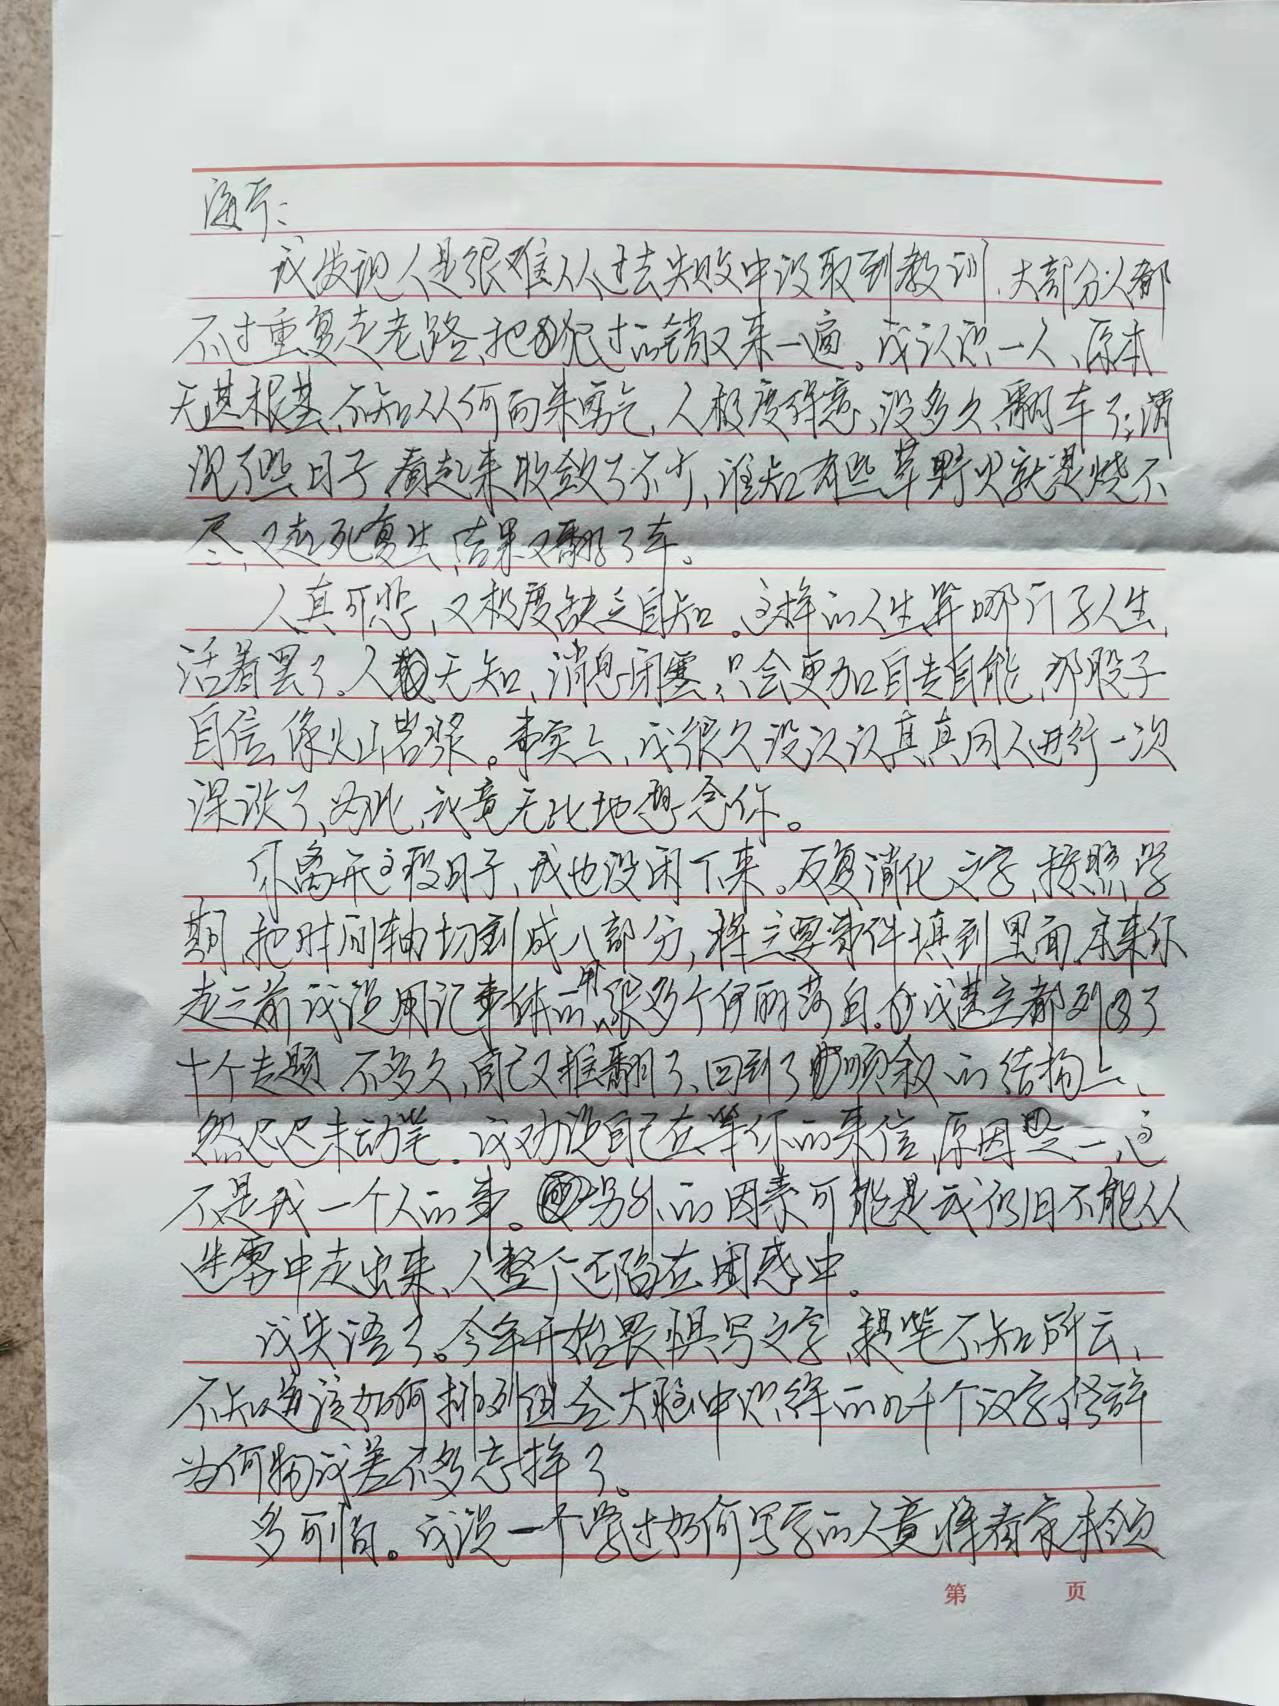 海宁：
我发现人是很难从过去失败中汲取到教训，大部分人都
不过重复走老路，把犯过的错又来一遍。我认识一人，原本
无甚根基，不知从何而来勇气，人极度得意，没多久翻车了；消
沉了些日子，看起来收敛了不少，谁知有些草野火就是烧不
尽，又起死复生，结果又翻了车。
人真可悲，又极度缺乏自知。这样的人生算哪门子人生，
活着罢了。人无知，消息闭塞，只会更加自去自能，那股子
自信，像火山岩浆。事实上，我很久没认认真真同人进行一次
深谈了，为此，我竟无比地想念你。
你离开这段日子，我也没闲下来。反复消化文字，按照学
期，把时间轴切割成八部分，将主要事件填到里面，本来你
走之前我说用记事体的，很多个伊丽莎白。我甚至都列了
十个专题，不多久，自己又推翻了，回到了顺叙的结构上，
然迟迟未动笔。我劝说自己在等你的来信，原因是一，这
不是我一个人的事。另外的因素可能是我仍旧不能从
迷雾中走出来，人整个还陷在困惑中。
我失语了。今年开始畏惧写文字，提笔不知所云，
不知道该如何排列组合大脑中识得的几千个汉字，修辞
为何物我差不多忘掉了。
多可怕。我说一个学过如何写字的人竟将看家本领
第 页